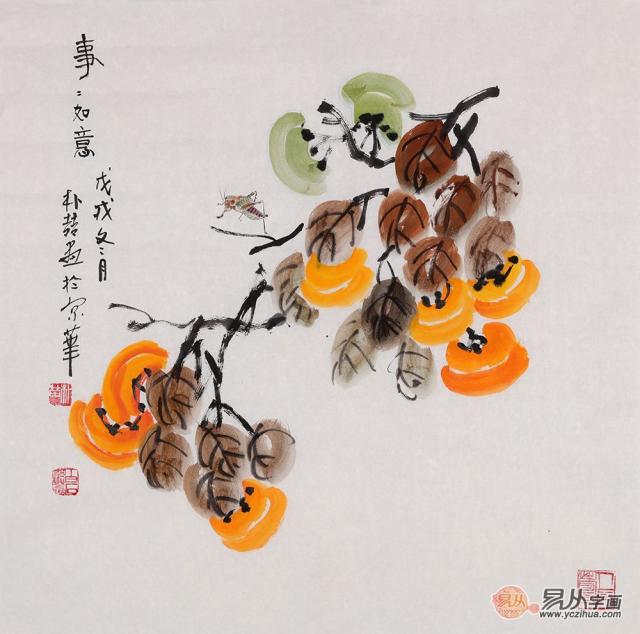 事:如意
戊戌冬月
朴喆画於京華
易从
易从字画
www.yczihua.com